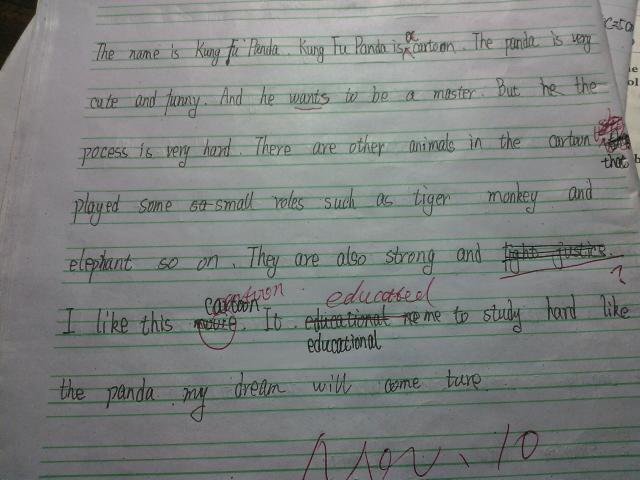 The name is Kung Fu Panda. Kung Fu Panda is a cartoon. The panda is very
cute and funny. And he wants to be a master. But he the
pocess is very hard. There are other animals in the cartoon
that
played some so small roles such as tiger monkey and
elephant so on. They are also strong and fight justice.
?
cartoon cartoon educated
I like this movie. It educational me to study hard like
educational
the panda. my dream will come ture.
Nov. 10